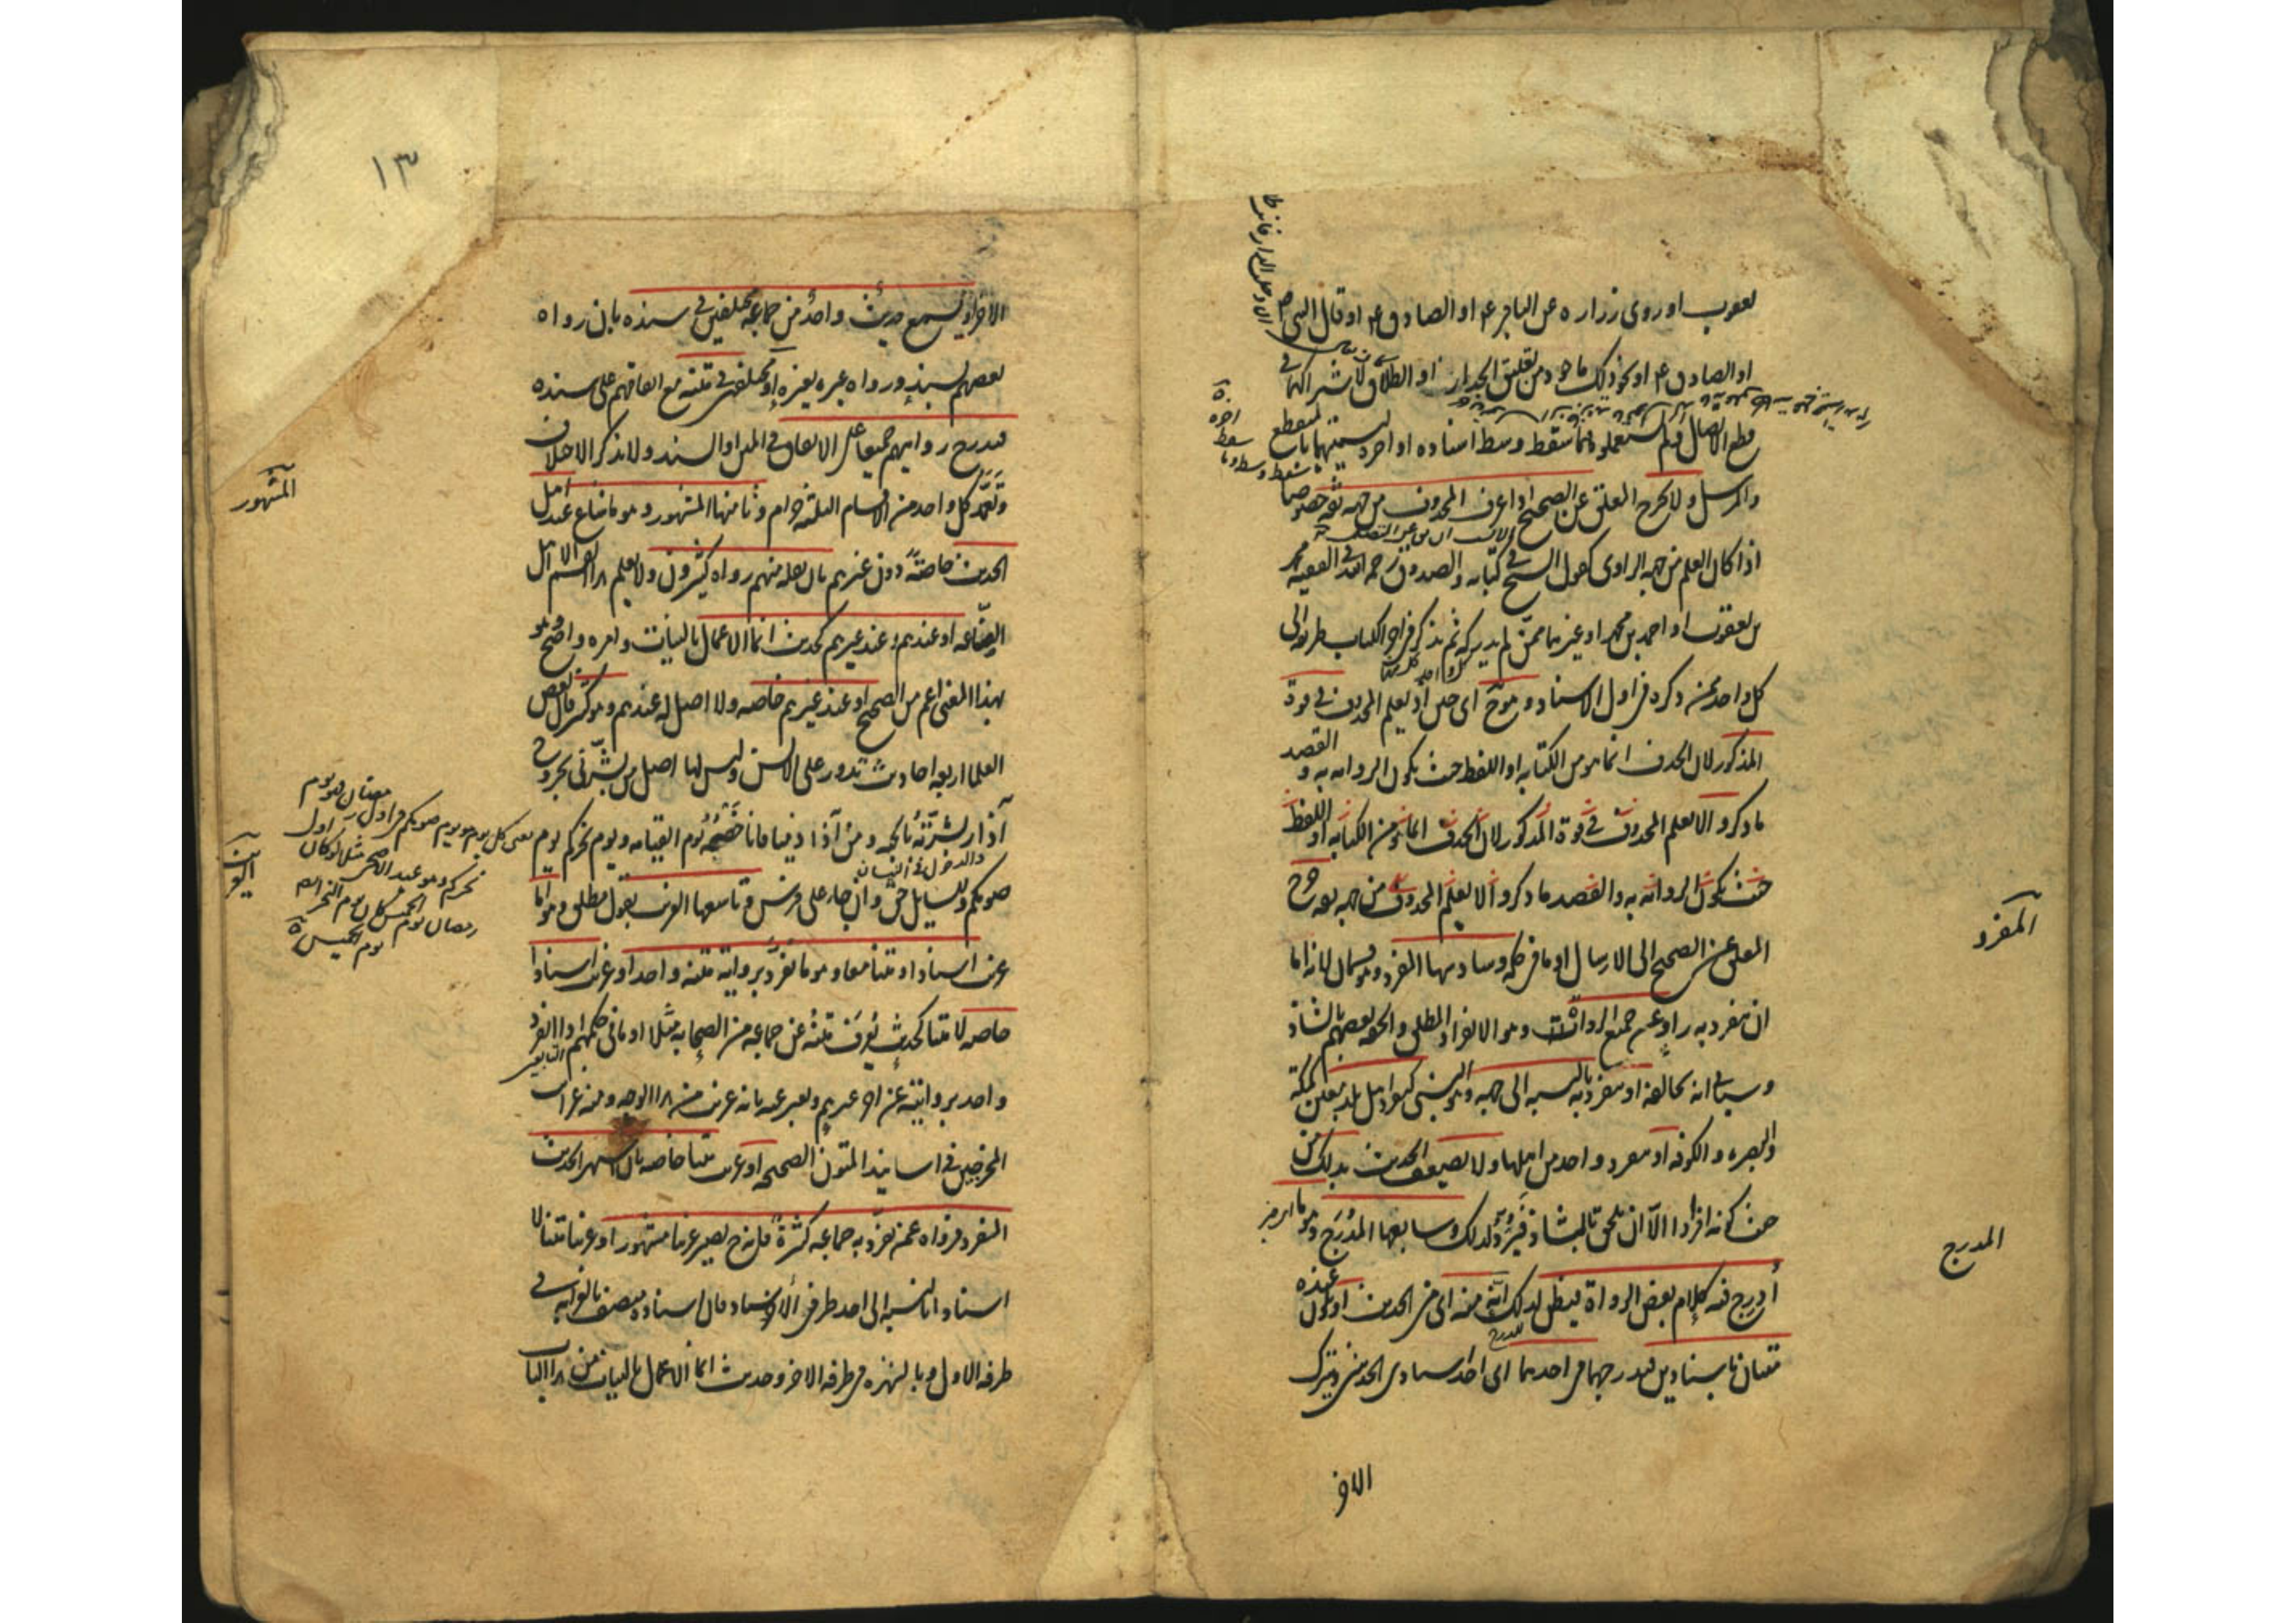 يعقوب او روى زرارة عن الباقر ع او الصادق ع او قال النبي ص
او الصادق ع او نحو ذلك ماخوذ من تعليق الجدار او الطلاق لاشتراكهما في
قطع الاتصال ولم يستعملوه فيما سقط وسط اسناده او اخره لتسميتهما بالمنقطع
والمرسل ولا يخرج المعلق عن الصحيح اذا عرف المحذوف من جهة ثقة خصوصا
اذا كان العلم من جهة الراوي كقول الشيخ في كتابيه والصدوق رحمه الله في الفقيه محمد
بن يعقوب او احمد بن محمد او غيرهما ممن لم يدركه ثم يذكر في اخر الكتاب طريقه الى
كل واحد ممن ذكره في اول الاسناد وهو ح اي حين اذ يعلم المحذوف في قوة
المذكور لان الحذف انما هو من الكتابة او اللفظ حيث يكون الرواية به والقصد
ما ذكر والا يعلم المحذوف في قوة المذكور لان الحذف انما هو من الكتابة او اللفظ
حيث تكون الرواية به والقصد ما ذكر والا يعلم المحذوف من جهة ثقة خرج
المعلق عن الصحيح الى الارسال او ما في حكمه وسادسها المفرد وهو قسمان لانه اما
ان ينفرد به راويه عن جميع الرواة وهو الانفراد المطلق والحقه بعضهم بالشاذ
وسياتي انه يخالفه او ينفرد به بالنسبة الى جهة وهو النسبي كتفرد اهل بلد معين كمكة
والبصرة والكوفة او تفرد واحد من اهلها ولا يضعف الحديث بذلك من
حيث كونه افرادا الا ان يلحق بالشاذ فيرد لذلك وسابعها المدرج وهو ما
أدرج فيه كلام بعض الرواة فيظن لذلك انه منه اي من الحديث او يكون عنده
متنان باسنادين فيدرجهما في احدهما اي احد اسنادي الحديثين ويترك
الاخر
المفرد
المدرج
١٣
الاخر او يسمع حديث واحد من جماعة مختلفين في سنده بان رواه
بعضهم بسند ورواه غيره بغيره او مختلفين في متنه مع اتفاقهم على سنده
فيدرج روايتهم جميعا على الاتفاق في المتن او السند ولا يذكر الاختلاف
وتعمد كل واحد من الاقسام الثلثة حرام وثامنها المشهور وهو ما شاع عند اهل
الحديث خاصة دون غيرهم بان نقله منهم رواة كثيرون ولا يعلم هذا القسم الا اهل
الصناعة او عندهم وعند غيرهم كحديث انما الاعمال بالنيات وامره واضح وهو
بهذا المعنى اعم من الصحيح او عند غيرهم خاصة ولا اصل له عندهم وهو كثير قال بعض
العلما اربعة احاديث تدور على الالسن وليس لها اصل من بشرني بخروج
آذار بشرته بالجنة ومن آذى ذميا فانا خصمه يوم القيامة ويوم نحركم يوم
صومكم وللسائل حق وان جاء على فرس وتاسعها الغريب بقول مطلق وهو اما
غريب اسنادا ومتنا معا وهو ما تفرد برواية متنه واحد او غريب اسنادا
خاصة لا متنا كحديث يعرف متنه عن جماعة من الصحابة مثلا او ما في حكمهم اذا انفرد
واحد بروايته عن اخر غيرهم ويعبر عنه بانه غريب من هذا الوجه ومنه غرايب
المخرجين في اسانيد المتون الصحيحة او غريب متنا خاصة بان اشتهر الحديث
المفرد فرواه عمن تفرد به جماعة كثيرة فانه ح يصير غريبا مشهورا وغريبا متنا لا
اسنادا بالنسبة الى احد طرفي الاسناد فان اسناده متصف بالغرابة في
طرفه الاول وبالشهرة في طرفه الاخر وحديث انما الاعمال بالنيات من هذا الباب
المشهور
الغريب